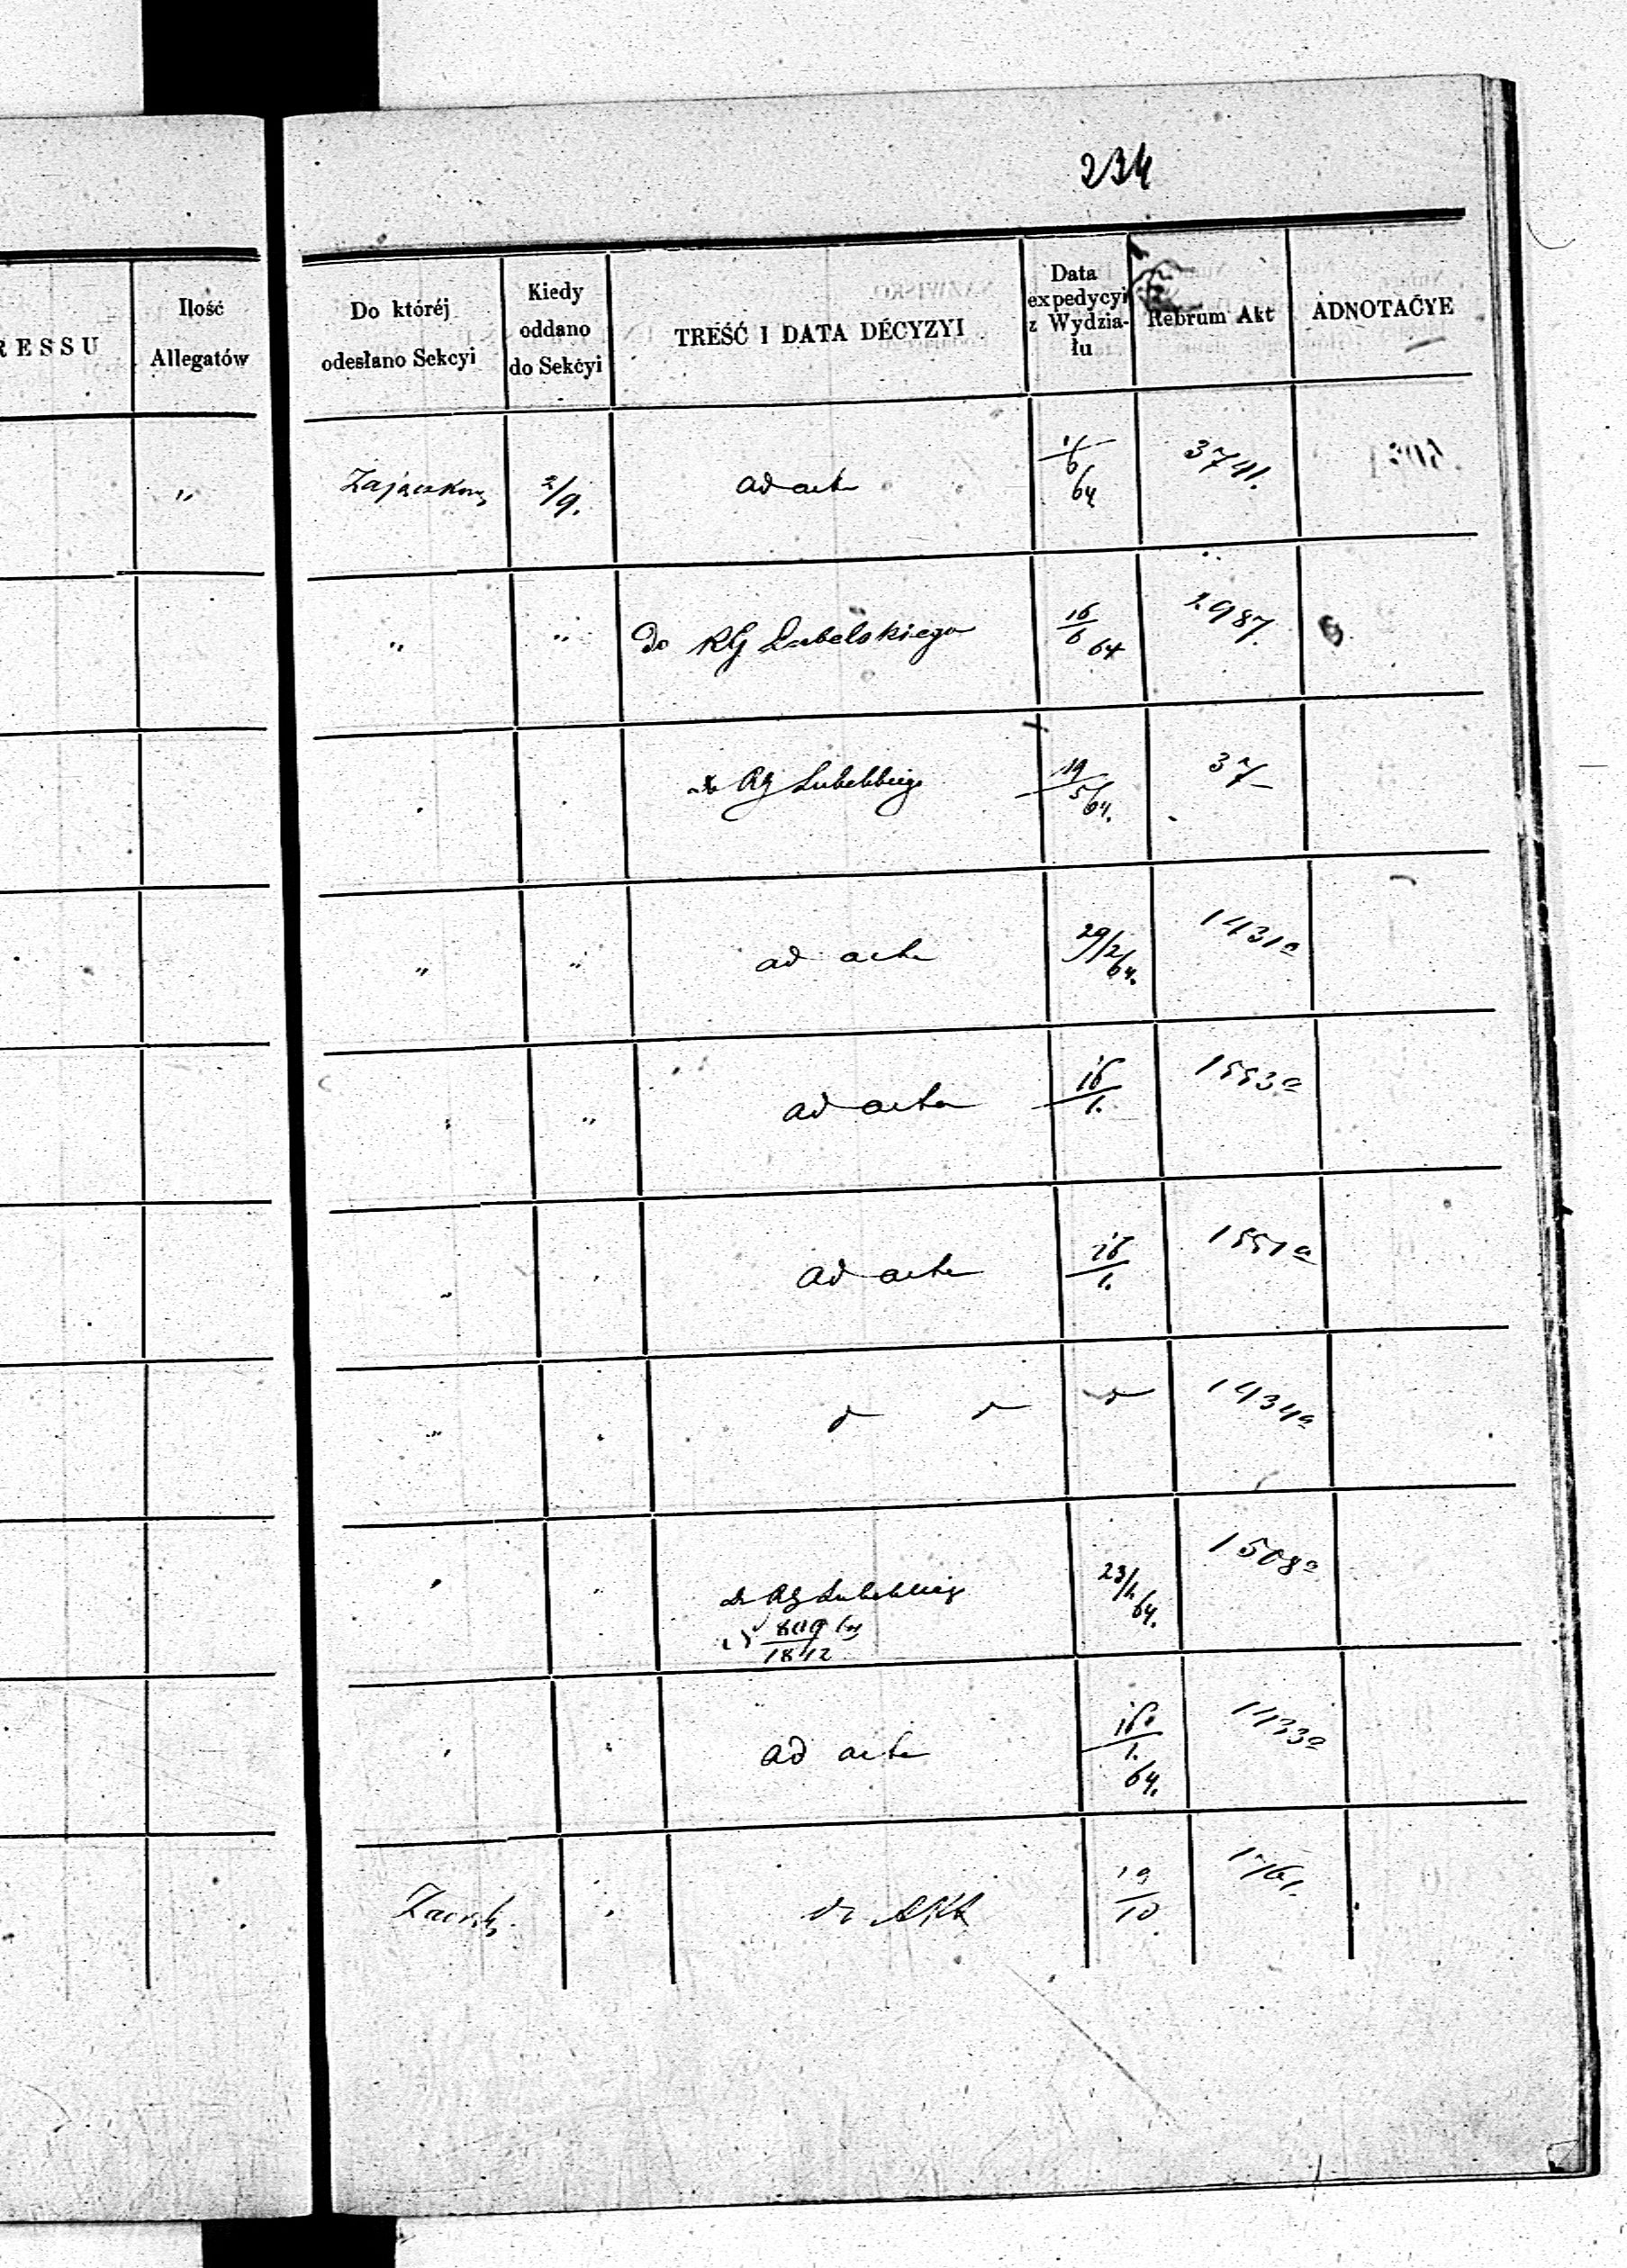 234
RESSU
Ilość
Allegatów
Do któréj
odesłano Sekcyi
Kiedy
oddano
do Sekcyi
TREŚĆ I DATA DECYZYI
Data
expedycyi
z Wydzia-
łu
Rebrum Akt
ADNOTACYE
" 2/9. ad acta 64 3741.
" " Do RG Lubelskiego 16/6 64 2987
RG Lubelskiego 19/5 64. 37
" " ad acta 29/2 64. 1431a
" " ad acta 16/1. 1553a
" ad acta 16/1. 1551a
" 1434a
do RG Lubelskiego 23/ 64. 1508a
809
1812
ad acta 16/1. 64. 1433a
do 19/10 1761.